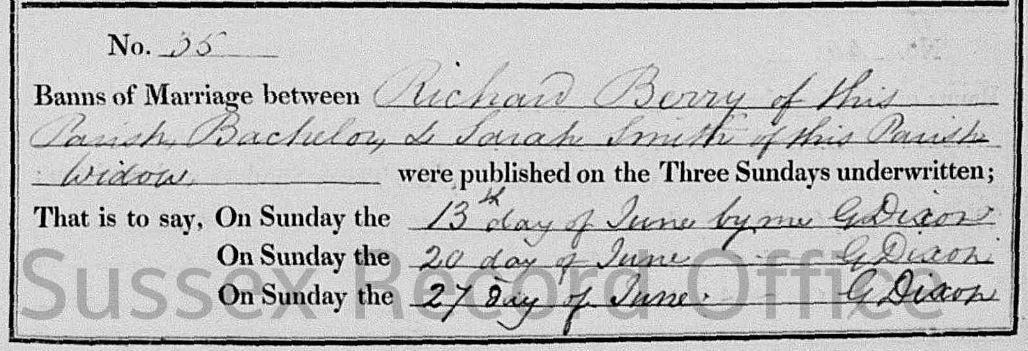 No. 35
Banns of Marriage between Richard Berry of this
Parish, Bachelor, & Sarah Smith of this Parish
Widow, were published on the Three Sundays underwritten;
That is to say, On Sunday the 13th day of June by me G Dixon
On Sunday the 20 day of June G Dixon
On Sunday the 27 day of June. G Dixon
Sussex Record Office